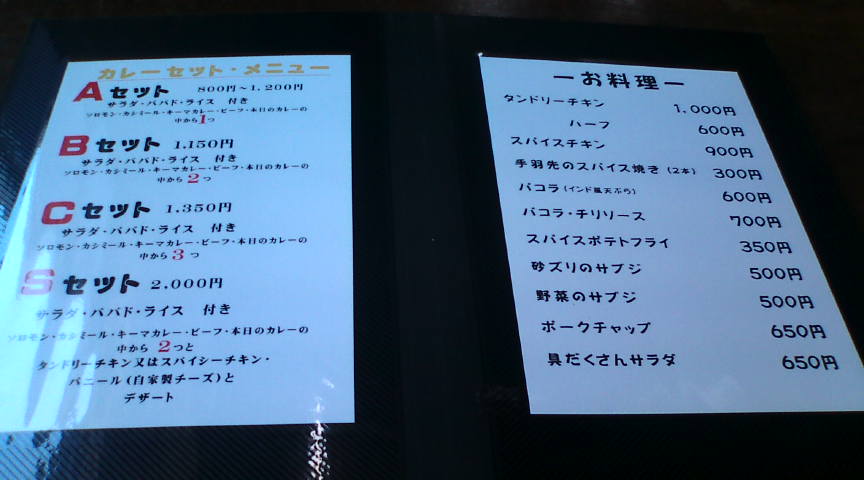 カレーセット・メニュー
Aセット 800円～1,200円
サラダ・パパド・ライス 付き
ソロモン・カシミール・キーマカレー・ビーフ・本日のカレーの
中から1つ
Bセット 1.150円
サラダ・パパド・ライス 付き
ソロモン・カシミール・キーマカレー・ビーフ・本日のカレーの
中から2つ
Cセット 1.350円
サラダ・パパド・ライス 付き
ソロモン・カシミール・キーマカレー・ビーフ・本日のカレーの
中から3つ
Sセット 2.000円
サラダ・パパド・ライス 付き
ソロモン・カシミール・キーマカレー・ビーフ・本日のカレーの
中から 2つと
タンドリーチキン又はスパイシーチキン・
パニール(自家製チーズ)と
デザート
ーお料理ー
タンドリーチキン 1,000円
ハーフ 600円
スパイスチキン 900円
手羽先のスパイス焼き(2本) 300円
パコラ(インド風天ぷら) 600円
パコラ・チリソース 700円
スパイスポテトフライ 350円
砂ズリのサブジ 500円
野菜のサブジ 500円
ポークチャップ 650円
具だくさんサラダ 650円